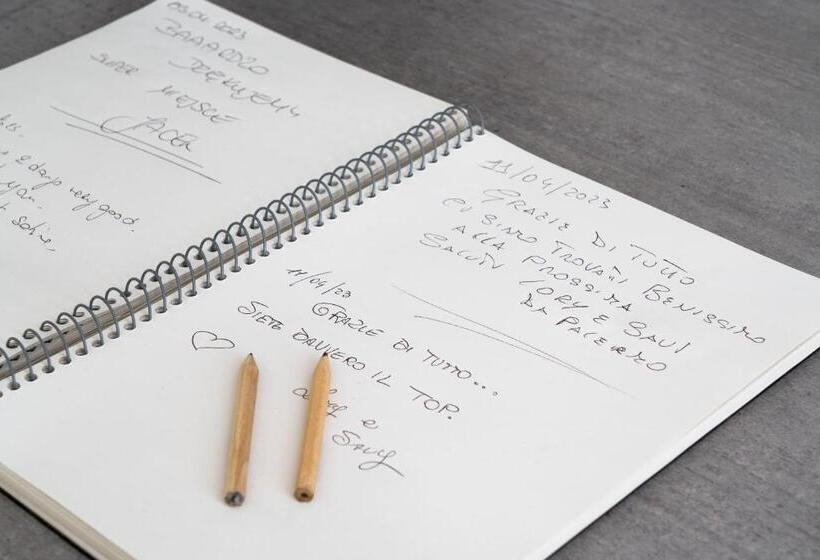 09.04.2023
BAAARDZO
DZIĘKUJEMY
SUPER MIEJSCE
JACEK
2 days very good.
11/04/2023
GRAZIE DI TUTTO
CI SIAMO TROVATI BENISSIMO
ALLA PROSSIMA
SALUTI JORY E SAVI
DA PALERMO
11/04/23
GRAZIE DI TUTTO...
SIETE DAVVERO IL TOP.
e